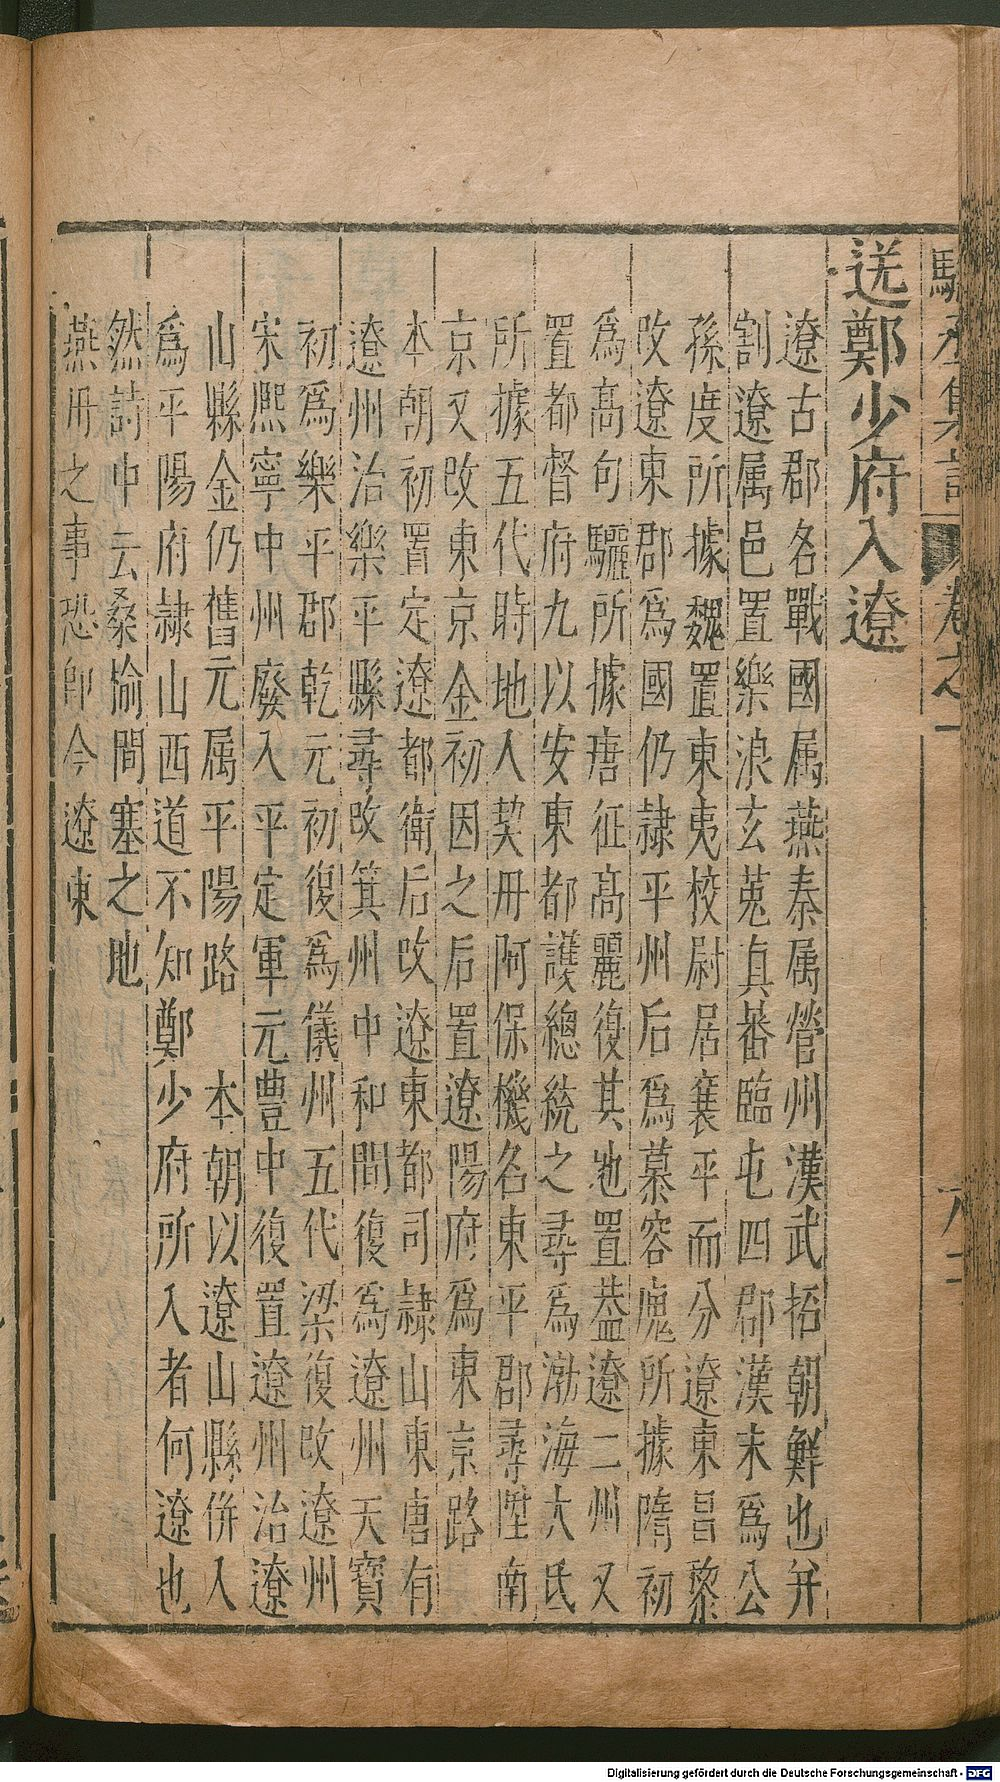 送鄭少府入遼
遼古郡名戰國属燕秦属營州漢武拓朝鮮也并
割遼属邑置樂浪玄菟真番臨屯四郡漢末爲公
孫度所據魏置東夷校尉居襄平而分遼東昌黎
改遼東郡爲國仍隷平州后爲慕容廆所據隋初
爲高句驪所據唐征高麗復其地置葢遼二州又
置都督府九以安東都護總統之尋爲渤海大氏
所據五代時地入契丹阿保機名東平郡尋陞南
京又改東京金初因之后置遼陽府爲東京路
本朝初置定遼都衛后改遼東都司隷山東唐有
遼州治樂平縣尋改箕州中和間復爲遼州天寶
初爲樂平郡乾元初復爲儀州五代梁復改遼州
宋熈寧中州廢入平定軍元豊中復置遼州治遼
山縣金仍舊元属平陽路 本朝以遼山縣併入
爲平陽府隷山西道不知鄭少府所入者何遼也
然詩中云桑榆間塞之地
燕丹之事恐即今遼東
Digitalisierung gefördert durch die Deutsche Forschungsgemeinschaft - DFG